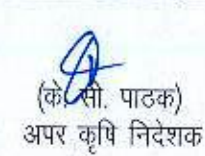 (के. सी. पाठक)
अपर कृषि निदेशक